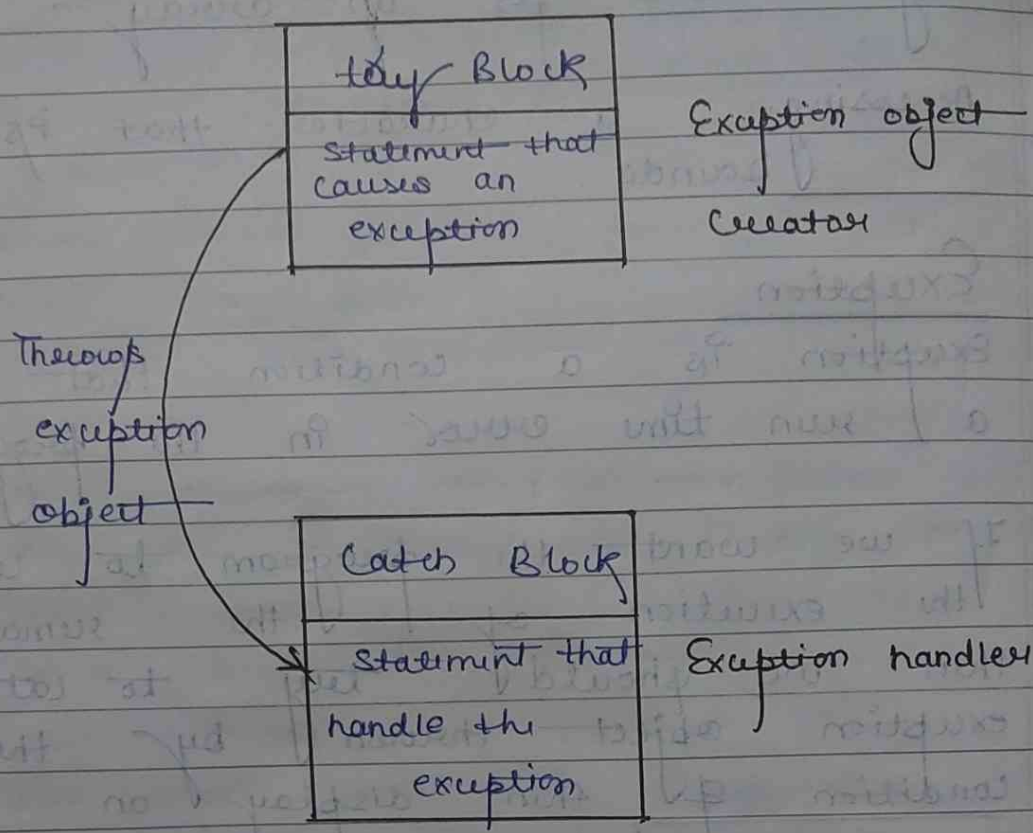 try Block
Statement that
causes an
exception
Exception object
Creator
Throws
exception
object
Catch Block
Statement that
handle the
exception
Exception handler